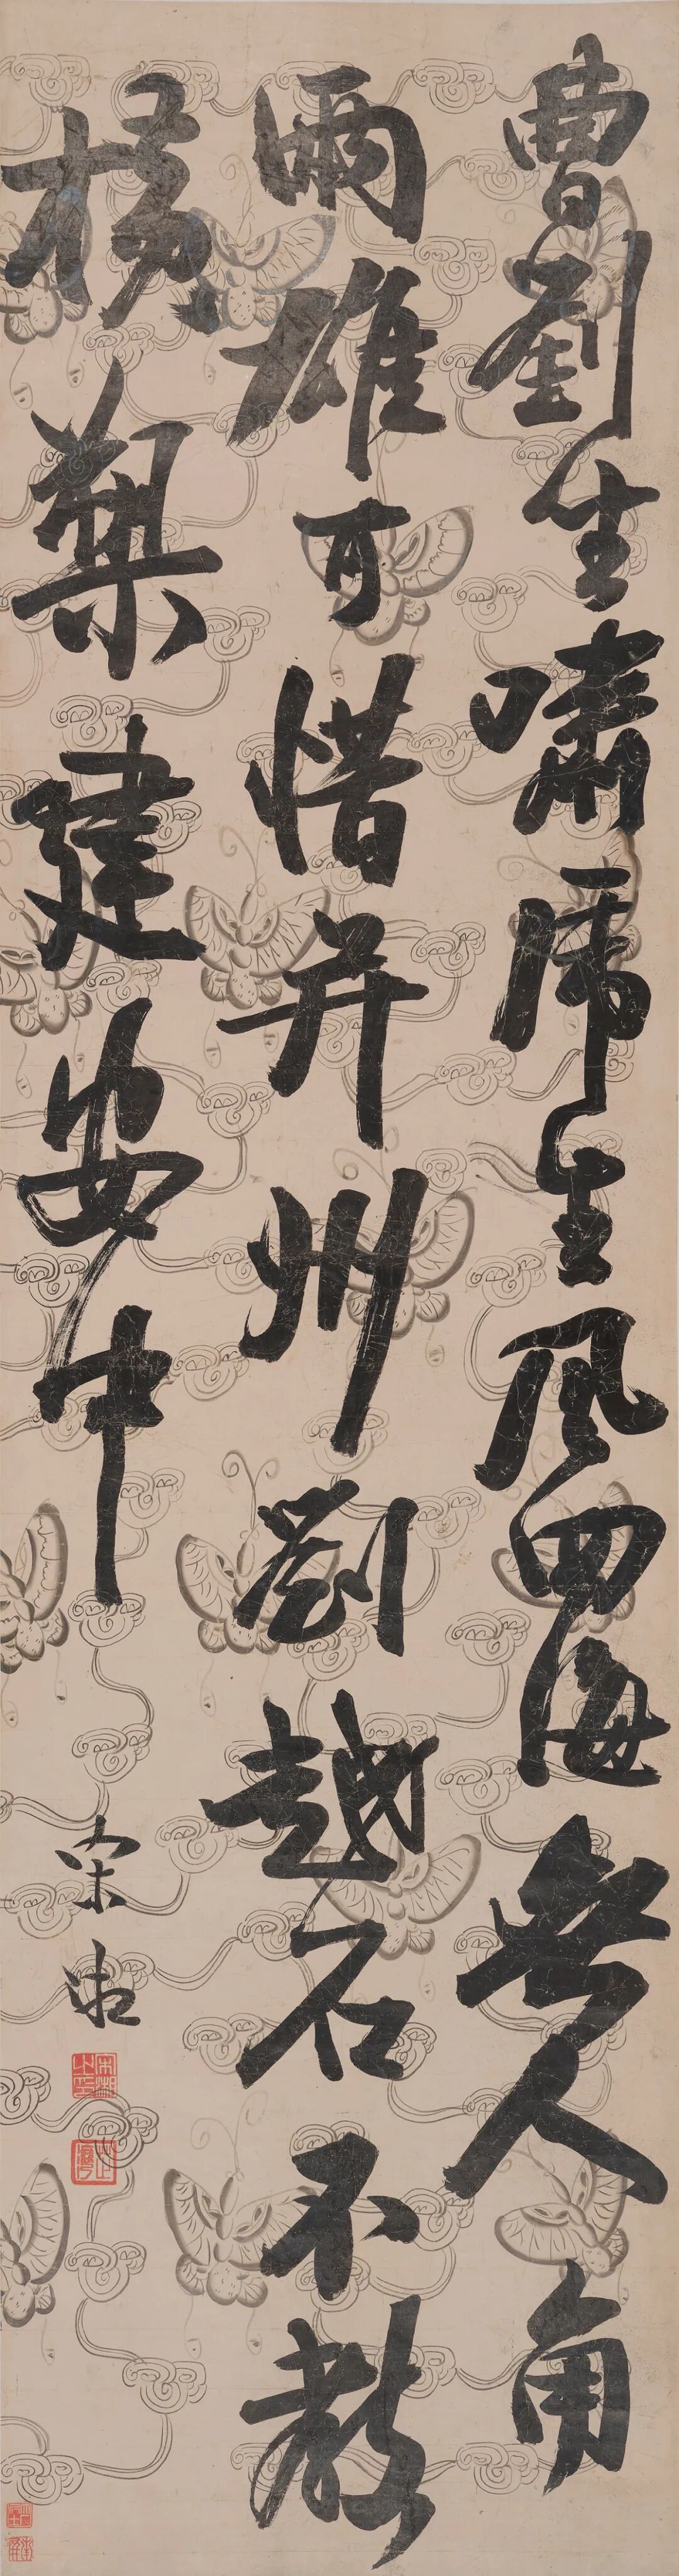 曹劉坐嘯虎生風四海無人角
兩雄可惜并州劉越石不教
橫槊建安中
宋湘
宋湘之印
芷灣